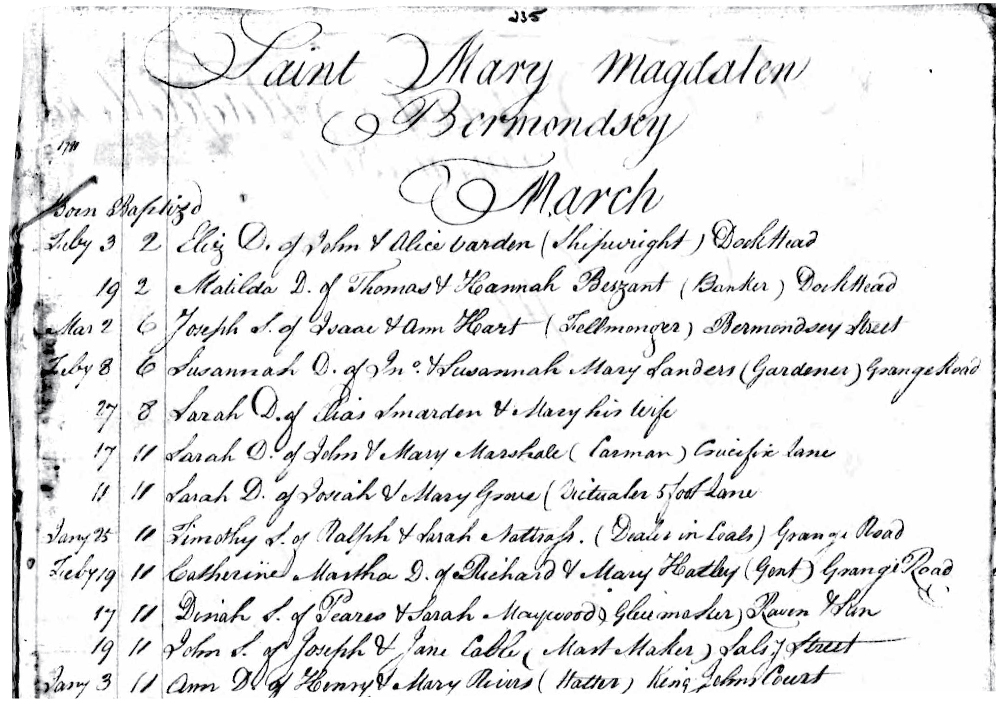 235
Saint Mary Magdalen
Bermondsey
March
Born Baptizd
Feby 3 2 Eliz D. of John & Alice Varden (Shipwright) Dock Head
19 2 Matilda D. of Thomas & Hannah Beszant (Banker) Dock Head
Mar 2 6 Joseph S. of Isaac & Ann Hart (Fellmonger) Bermondsey Street
Feby 8 6 Susannah D. of Jno. & Susannah Mary Landers (Gardener) Grange Road
27 8 Sarah D. of Elias Smarden & Mary his Wife
17 11 Sarah D. of John & Mary Marshale (Carman) Crucifix Lane
11 11 Sarah D. of Josiah & Mary Grove (Victualer 5 foot Lane
Jany 25 11 Timothy S. of Ralph & Sarah Nattrass. (Dealer in Coals) Grange Road
Feby 19 11 Catherine Martha D. of Richard & Mary Hatley (Gent) Grange Road
17 11 Dinah S. of Peares & Sarah Maywood (Gluemaker) Raven & Sun
19 11 John S. of Joseph & Jane Cable (Mast Maker) Street
Jany 3 11 Ann D. of Henry & Mary Rivers (Hatter) King Johns Court